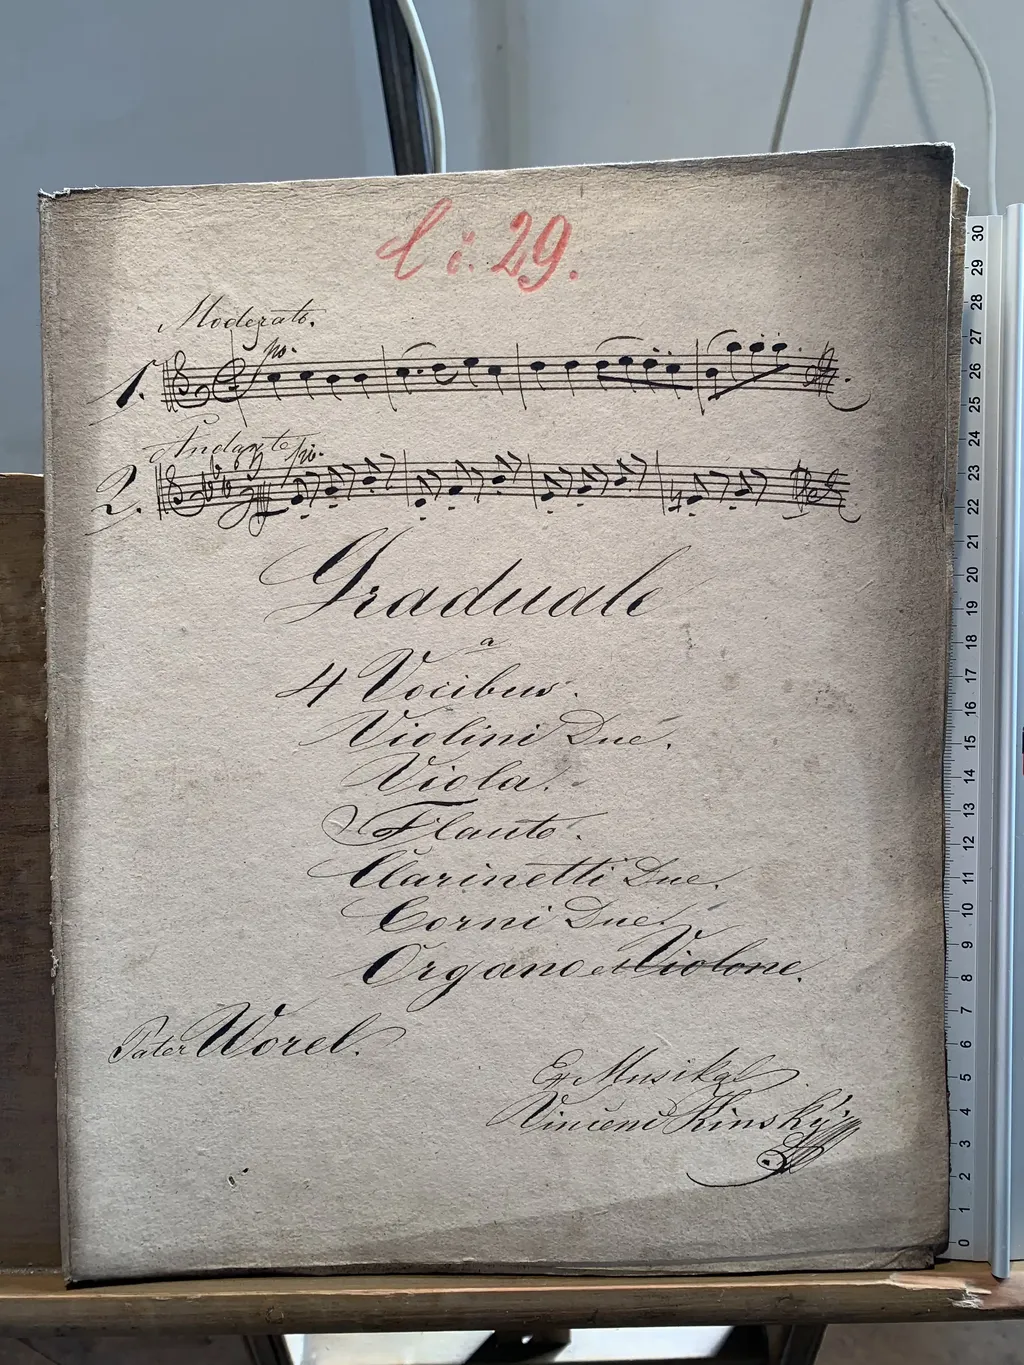 C i: 29.
Moderato.
1. po.
Andante
2. po.
Graduale
a
4 Vocibus.
Violini Due.
Viola.
Flauto.
Clarinetti Due.
Corni Due.
Organo et Violone.
Pater Worel.
Ex Musikal
Vincenc Kinský
30
29
28
27
26
25
24
23
22
21
20
19
18
17
16
15
14
13
12
11
10
9
8
7
6
5
4
3
2
1
0